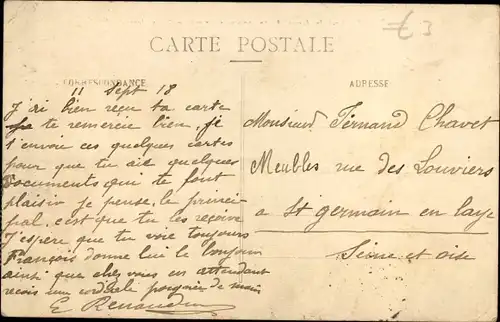 £ 3
CARTE POSTALE
CORRESPONDANCE
ADRESSE
11 Sept 18
J'ai bien reçu ta carte
te remercie bien, je
t'envoie ces quelques cartes
pour que tu aie quelques
documents qui te font
plaisir je pense, le princi
pal c'est que tu les reçoive
J'espère que tu voie toujours
François donne lui le bonjour
ainsi que chez vous en attendant
reçois une cordiale poignée de main
E Renaudin
Monsieur Fernand Chavet
Meubles rue des Louviers
a St germain en laye
Seine et oise